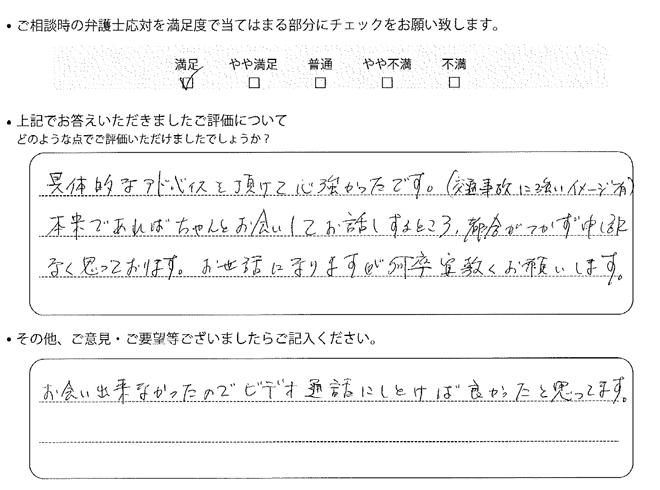 • ご相談時の弁護士応対を満足度で当てはまる部分にチェックをお願い致します。
満足 やや満足 普通 やや不満 不満
• 上記でお答えいただきましたご評価について
どのような点でご評価いただけましたでしょうか？
具体的なアドバイスを頂けて心強かったです。(交通事故に強いイメージ有)
本来であればちゃんとお会いしてお話しするところ、都合がつかず申し訳
なく思っております。お世話になりますが何卒宜敷くお願いします。
• その他、ご意見・ご要望等ございましたらご記入ください。
お会い出来なかったのでビデオ通話にしとけば良かったと思ってます。